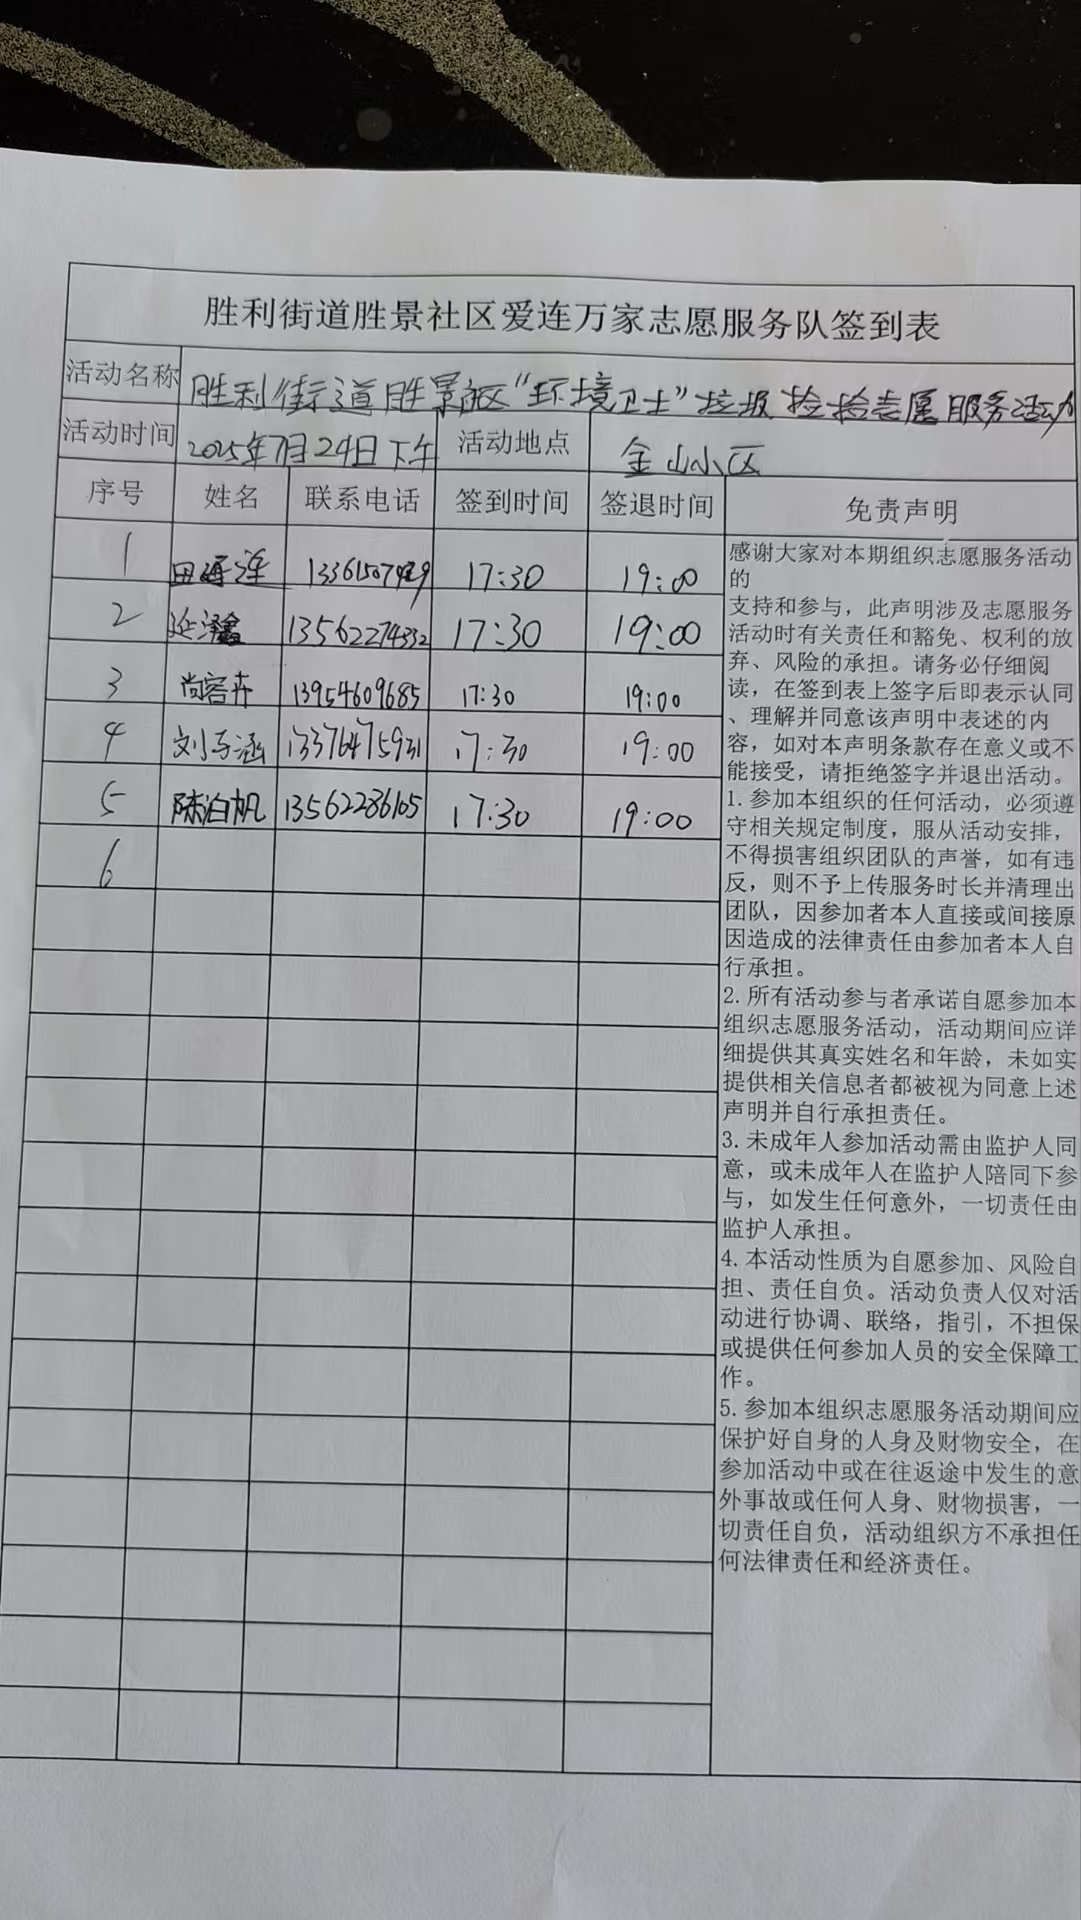 胜利街道胜景社区爱连万家志愿服务队签到表
活动名称 胜利街道胜景社区“环境卫士”垃圾捡拾志愿服务活动
活动时间 2025年7月24日下午 活动地点 金山小区
序号 姓名 联系电话 签到时间 签退时间 免责声明
1 田 连 17:30 19:00
2 延泽鑫 13562274332 17:30 19:00
3 尚容卉 13954609685 17:30 19:00
4 刘与涵 13376475931 17:30 19:00
5 陈泊帆 13562286105 17:30 19:00
6
感谢大家对本期组织志愿服务活动
的
支持和参与，此声明涉及志愿服务
活动时有关责任和豁免、权利的放
弃、风险的承担。请务必仔细阅
读，在签到表上签字后即表示认同
、理解并同意该声明中表述的内
容，如对本声明条款存在意义或不
能接受，请拒绝签字并退出活动。
1. 参加本组织的任何活动，必须遵
守相关规定制度，服从活动安排，
不得损害组织团队的声誉，如有违
反，则不予上传服务时长并清理出
团队，因参加者本人直接或间接原
因造成的法律责任由参加者本人自
行承担。
2. 所有活动参与者承诺自愿参加本
组织志愿服务活动，活动期间应详
细提供其真实姓名和年龄，未如实
提供相关信息者都被视为同意上述
声明并自行承担责任。
3. 未成年人参加活动需由监护人同
意，或未成年人在监护人陪同下参
与，如发生任何意外，一切责任由
监护人承担。
4. 本活动性质为自愿参加、风险自
担、责任自负。活动负责人仅对活
动进行协调、联络，指引，不担保
或提供任何参加人员的安全保障工
作。
5. 参加本组织志愿服务活动期间应
保护好自身的人身及财物安全，在
参加活动中或在往返途中发生的意
外事故或任何人身、财物损害，一
切责任自负，活动组织方不承担任
何法律责任和经济责任。